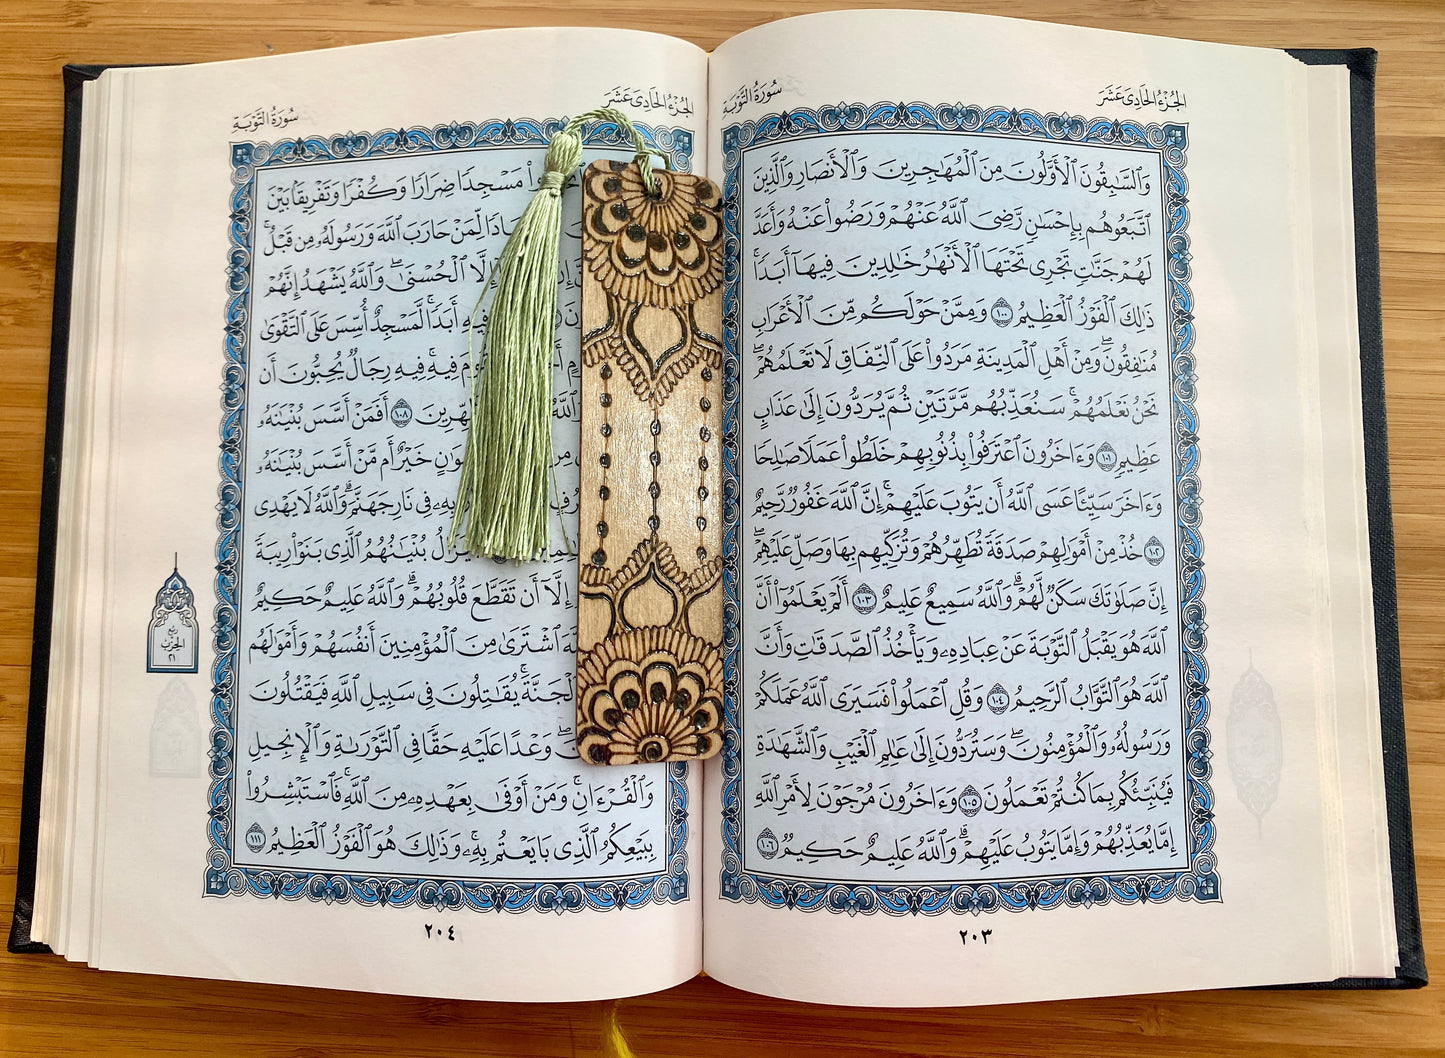 الجُزْءُ الحَادِيَ عَشَرَ سُورَةُ التَّوْبَةِ
وَٱلسَّـٰبِقُونَ ٱلْأَوَّلُونَ مِنَ ٱلْمُهَـٰجِرِينَ وَٱلْأَنصَارِ وَٱلَّذِينَ
ٱتَّبَعُوهُم بِإِحْسَـٰنٍ رَّضِىَ ٱللَّهُ عَنْهُمْ وَرَضُوا۟ عَنْهُ وَأَعَدَّ
لَهُمْ جَنَّـٰتٍ تَجْرِى تَحْتَهَا ٱلْأَنْهَـٰرُ خَـٰلِدِينَ فِيهَآ أَبَدًا ۚ
ذَٰلِكَ ٱلْفَوْزُ ٱلْعَظِيمُ ١٠٠ وَمِمَّنْ حَوْلَكُم مِّنَ ٱلْأَعْرَابِ
مُنَـٰفِقُونَ ۖ وَمِنْ أَهْلِ ٱلْمَدِينَةِ مَرَدُوا۟ عَلَى ٱلنِّفَاقِ لَا تَعْلَمُهُمْ ۖ
نَحْنُ نَعْلَمُهُمْ ۚ سَنُعَذِّبُهُم مَّرَّتَيْنِ ثُمَّ يُرَدُّونَ إِلَىٰ عَذَابٍ
عَظِيمٍ ١٠١ وَءَاخَرُونَ ٱعْتَرَفُوا۟ بِذُنُوبِهِمْ خَلَطُوا۟ عَمَلًا صَـٰلِحًا
وَءَاخَرَ سَيِّئًا عَسَى ٱللَّهُ أَن يَتُوبَ عَلَيْهِمْ ۚ إِنَّ ٱللَّهَ غَفُورٌ رَّحِيمٌ
١٠٢ خُذْ مِنْ أَمْوَٰلِهِمْ صَدَقَةً تُطَهِّرُهُمْ وَتُزَكِّيهِم بِهَا وَصَلِّ عَلَيْهِمْ ۖ
إِنَّ صَلَوٰتَكَ سَكَنٌ لَّهُمْ ۗ وَٱللَّهُ سَمِيعٌ عَلِيمٌ ١٠٣ أَلَمْ يَعْلَمُوٓا۟ أَنَّ
ٱللَّهَ هُوَ يَقْبَلُ ٱلتَّوْبَةَ عَنْ عِبَادِهِۦ وَيَأْخُذُ ٱلصَّدَقَـٰتِ وَأَنَّ
ٱللَّهَ هُوَ ٱلتَّوَّابُ ٱلرَّحِيمُ ١٠٤ وَقُلِ ٱعْمَلُوا۟ فَسَيَرَى ٱللَّهُ عَمَلَكُمْ
وَرَسُولُهُۥ وَٱلْمُؤْمِنُونَ ۖ وَسَتُرَدُّونَ إِلَىٰ عَـٰلِمِ ٱلْغَيْبِ وَٱلشَّهَـٰدَةِ
فَيُنَبِّئُكُم بِمَا كُنتُمْ تَعْمَلُونَ ١٠٥ وَءَاخَرُونَ مُرْجَوْنَ لِأَمْرِ ٱللَّهِ
إِمَّا يُعَذِّبُهُمْ وَإِمَّا يَتُوبُ عَلَيْهِمْ ۗ وَٱللَّهُ عَلِيمٌ حَكِيمٌ ١٠٦
٢٠٣
الجُزْءُ الحَادِيَ عَشَرَ سُورَةُ التَّوْبَةِ
مَسْجِدًا ضِرَارًا وَكُفْرًا وَتَفْرِيقًۢا بَيْنَ
لِّمَنْ حَارَبَ ٱللَّهَ وَرَسُولَهُۥ مِن قَبْلُ ۚ
إِلَّا ٱلْحُسْنَىٰ ۖ وَٱللَّهُ يَشْهَدُ إِنَّهُمْ
فِيهِ أَبَدًا ۚ لَّمَسْجِدٌ أُسِّسَ عَلَى ٱلتَّقْوَىٰ
فِيهِ ۚ فِيهِ رِجَالٌ يُحِبُّونَ أَن
١٠٨ أَفَمَنْ أَسَّسَ بُنْيَـٰنَهُۥ
خَيْرٌ أَم مَّنْ أَسَّسَ بُنْيَـٰنَهُۥ
بِهِۦ فِى نَارِ جَهَنَّمَ ۗ وَٱللَّهُ لَا يَهْدِى
بُنْيَـٰنُهُمُ ٱلَّذِى بَنَوْا۟ رِيبَةً
إِلَّآ أَن تَقَطَّعَ قُلُوبُهُمْ ۗ وَٱللَّهُ عَلِيمٌ حَكِيمٌ
ٱشْتَرَىٰ مِنَ ٱلْمُؤْمِنِينَ أَنفُسَهُمْ وَأَمْوَٰلَهُم
ٱلْجَنَّةَ ۚ يُقَـٰتِلُونَ فِى سَبِيلِ ٱللَّهِ فَيَقْتُلُونَ
وَعْدًا عَلَيْهِ حَقًّا فِى ٱلتَّوْرَىٰةِ وَٱلْإِنجِيلِ
وَٱلْقُرْءَانِ ۚ وَمَنْ أَوْفَىٰ بِعَهْدِهِۦ مِنَ ٱللَّهِ ۚ فَٱسْتَبْشِرُوا۟
بِبَيْعِكُمُ ٱلَّذِى بَايَعْتُم بِهِۦ ۚ وَذَٰلِكَ هُوَ ٱلْفَوْزُ ٱلْعَظِيمُ ١١١
رُبْع
الحِزْب
٢١
٢٠٤